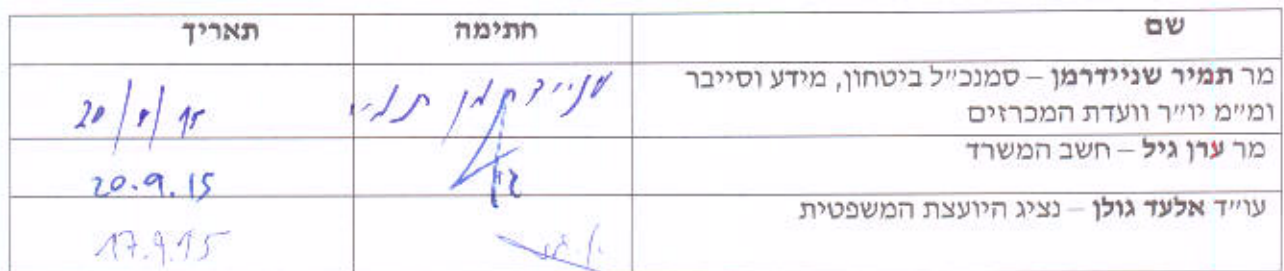 שם חתימה תאריך
מר תמיר שניידרמן – סמנכ״ל ביטחון, מידע וסייבר
ומ״מ יו״ר וועדת המכרזים
שניידרמן תמיר
מר ערן גיל – חשב המשרד 20.9.15
עו״ד אלעד גולן – נציג היועצת המשפטית 17.9.15